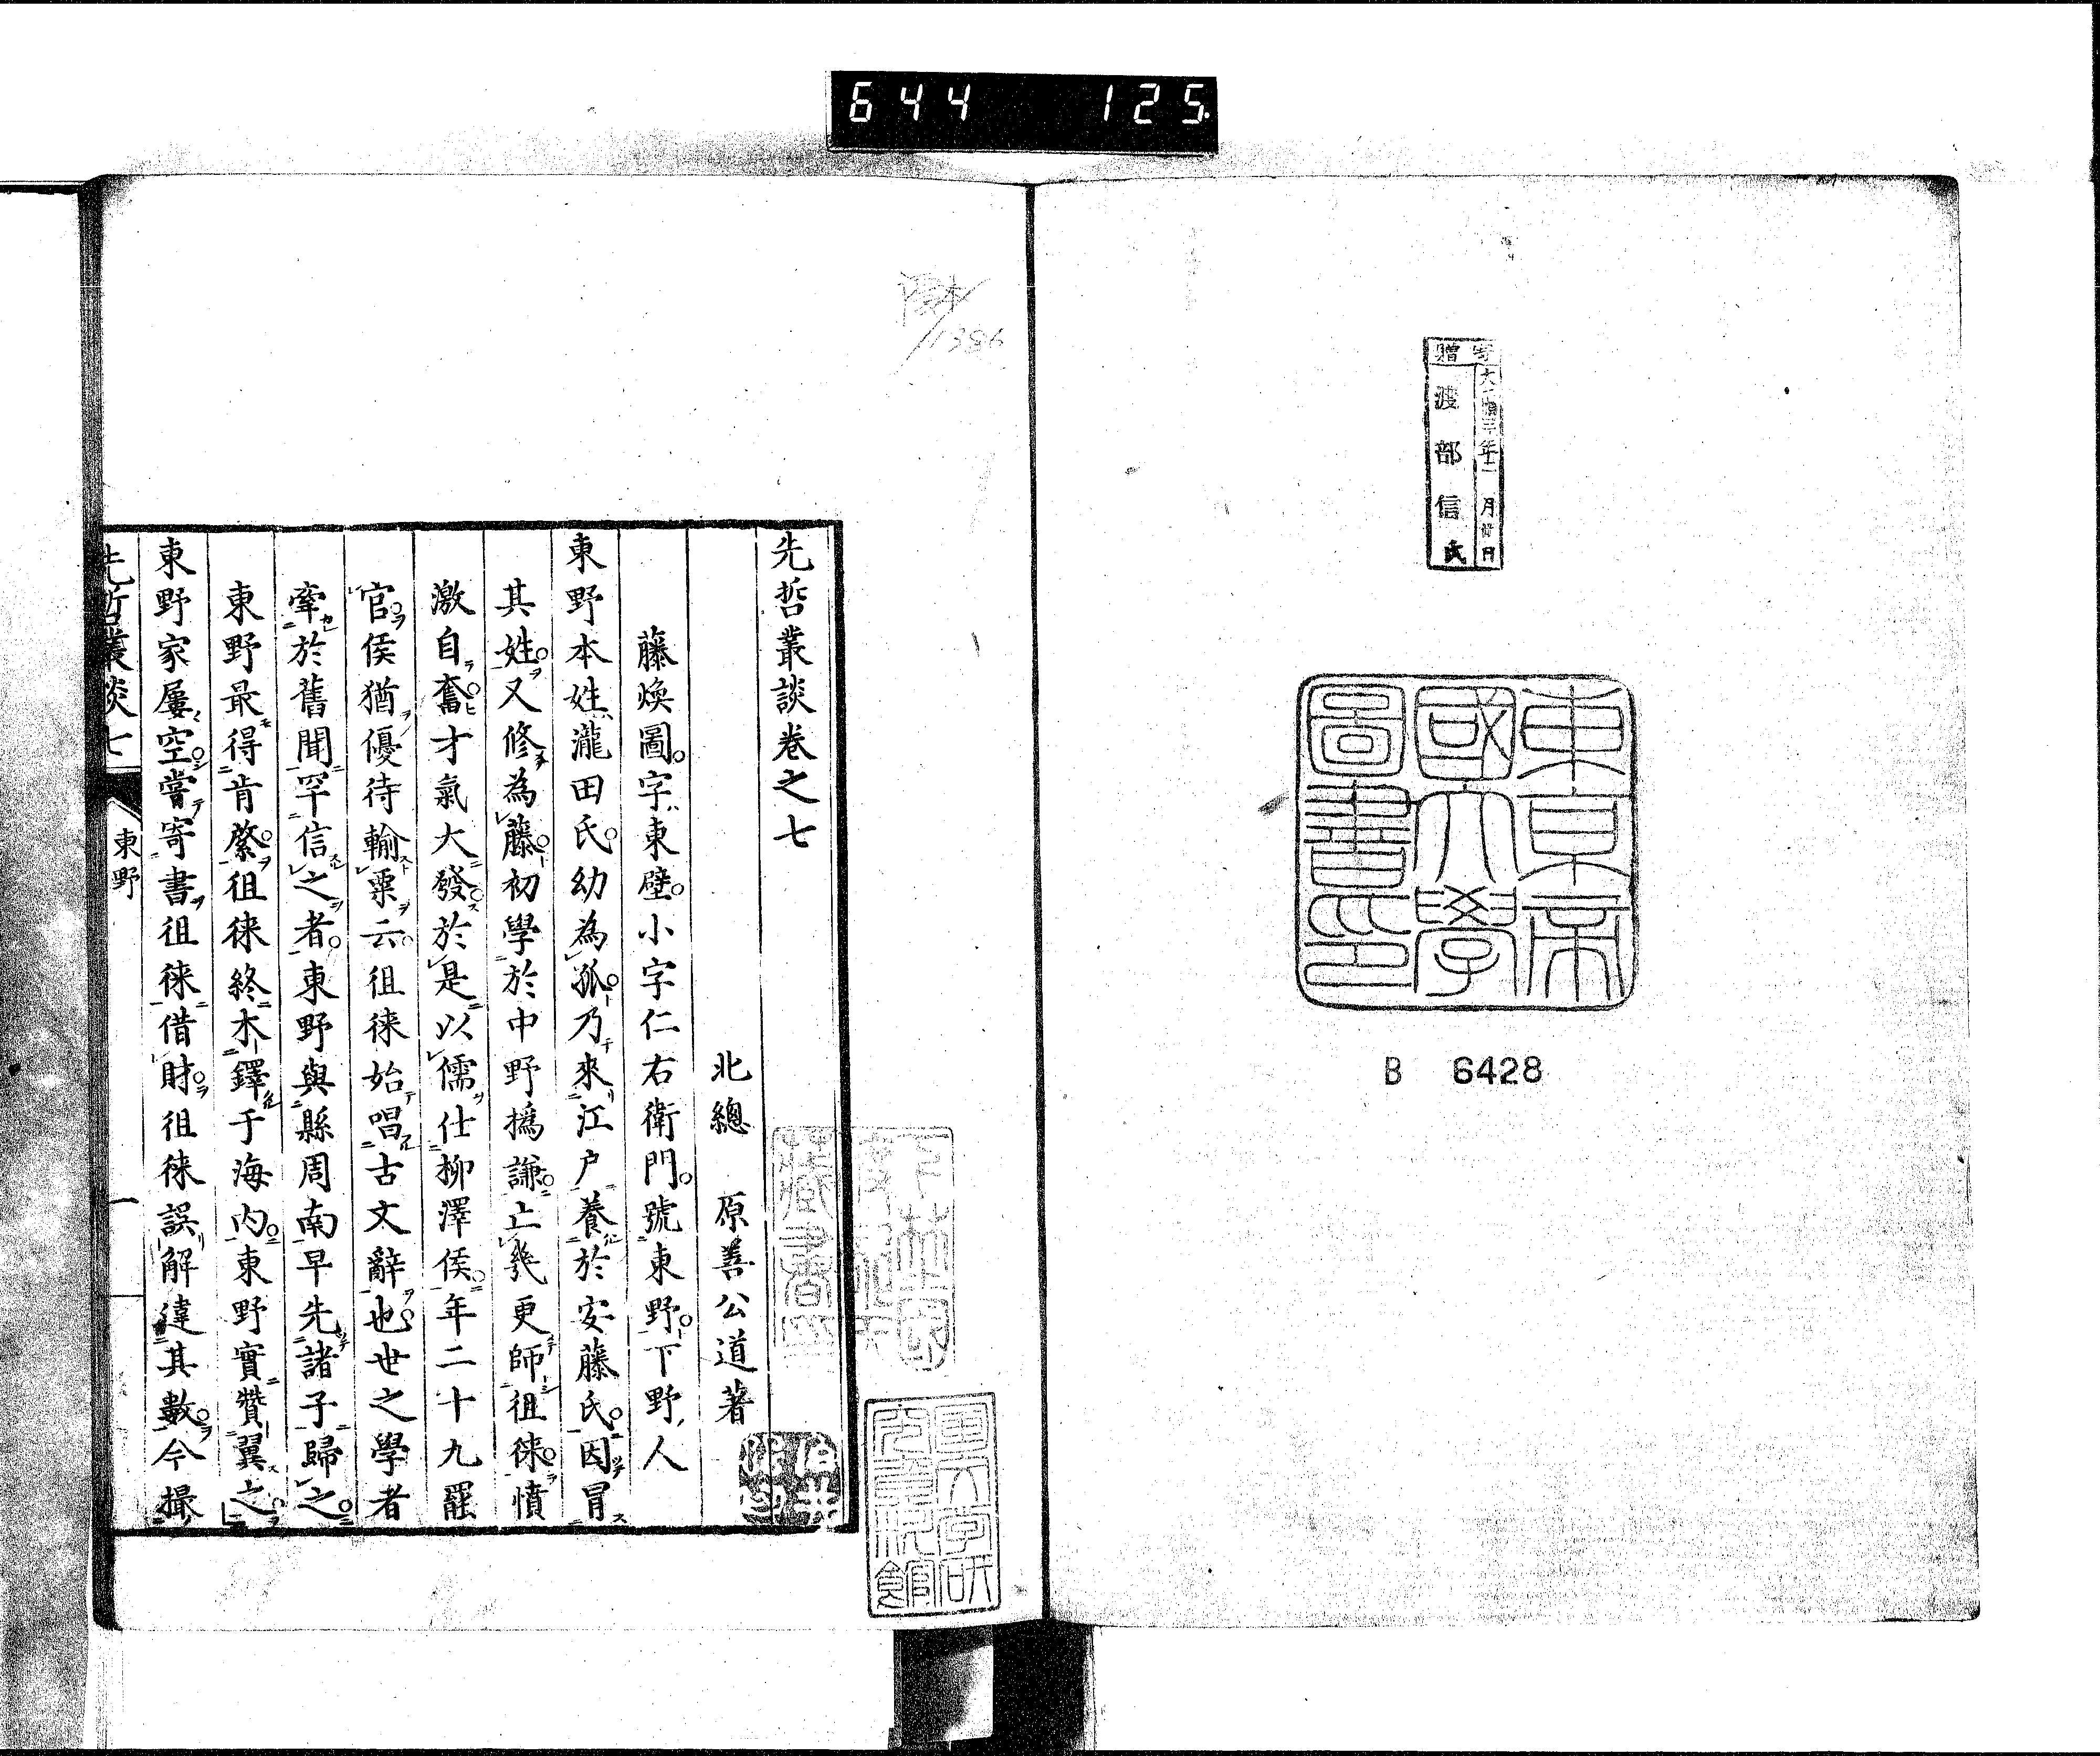 644 125
寄贈
大正 年 月 日
渡部信氏
東京帝
國大學
圖書印
B 6428
1386
先哲叢談卷之七
北總 原善公道著
藤煥圖。字東壁。小字仁右衛門。號東野。下野人
東野本姓瀧田氏。幼為孤。乃來江戶養於安藤氏。因冒
其姓。又修為藤。初學於中野撝謙。亡幾更師徂徠。憤
激自奮。才氣大發。於是以儒仕柳澤侯。年二十九罷
官。侯猶優待輸粟云。徂徠始唱古文辭也。世之學者
牽於舊聞罕信之者。東野與縣周南早先諸子歸之。
東野最得肯綮。徂徠終木鐸于海內。東野實贊翼之。
東野家屢空。嘗寄書徂徠借財。徂徠誤解違其數。今撮
先哲叢談七
東野
一